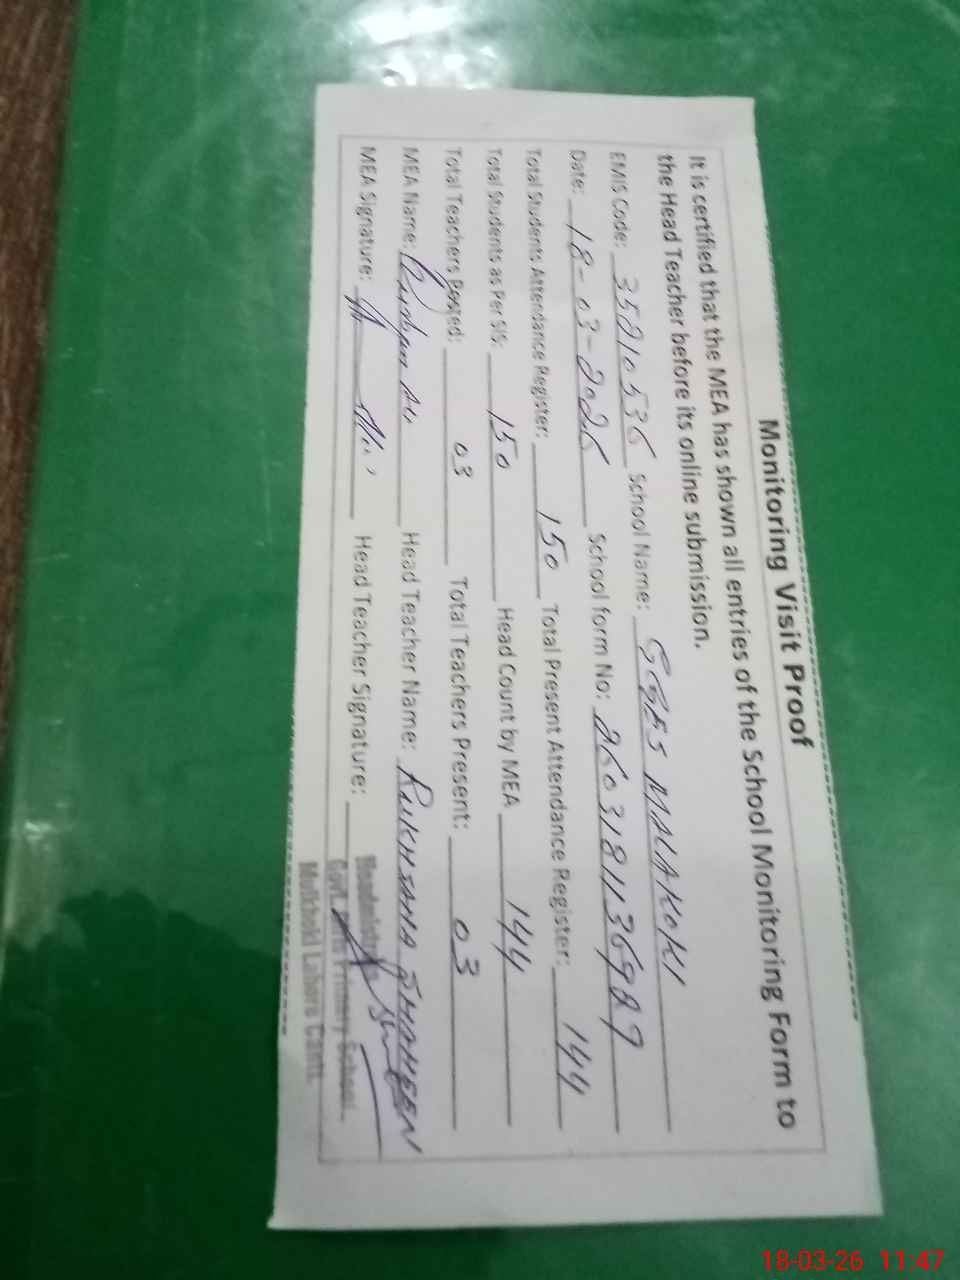 Monitoring Visit Proof
It is certified that the MEA has shown all entries of the School Monitoring Form to
the Head Teacher before its online submission.
EMIS Code: 35210536 School Name: GGES MALAKOKI
Date: 18-03-2026 School form No: 2603181136989
Total Students Attendance Register: 150 Total Present Attendance Register: 144
Total Students as Per SIS: 150 Head Count by MEA 144
Total Teachers Posted: 03 Total Teachers Present: 03
MEA Name: Head Teacher Name: RUKHSANA SHAHEEN
MEA Signature: Head Teacher Signature:
Headmistress
Govt. Primary School
Lahore Cantt.
18-03-26 11:47